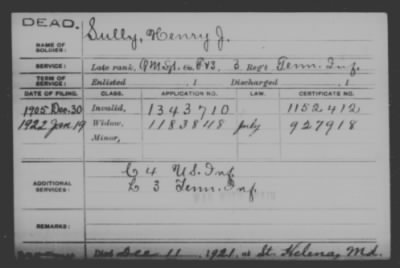 DEAD.
NAME OF SOLDIER: Sully, Henry J.
SERVICE: Late rank, Q M Sgt. Co. F & S, 3 Reg't Tenn. Inf.
TERM OF SERVICE: Enlisted , 1 Discharged , 1
DATE OF FILING. CLASS. APPLICATION NO. LAW. CERTIFICATE NO.
1905 Dec. 30 Invalid, 1343710 1152412
1922 Jan 19 Widow, 1183848 July 927918
Minor,
ADDITIONAL SERVICES: C 4 U S. Inf.
L 3 Tenn. Inf.
REMARKS:
Died Dec 11, 1921, at St. Helena, Md.